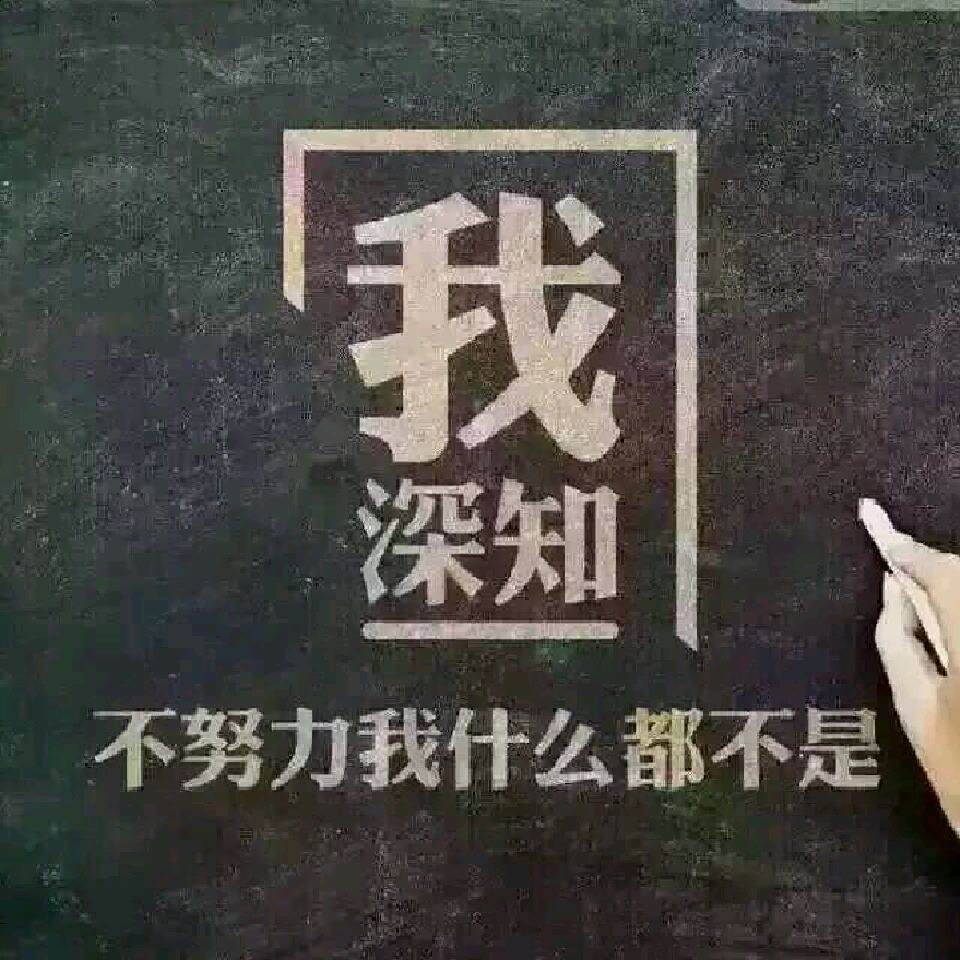 我
深知
不努力我什么都不是